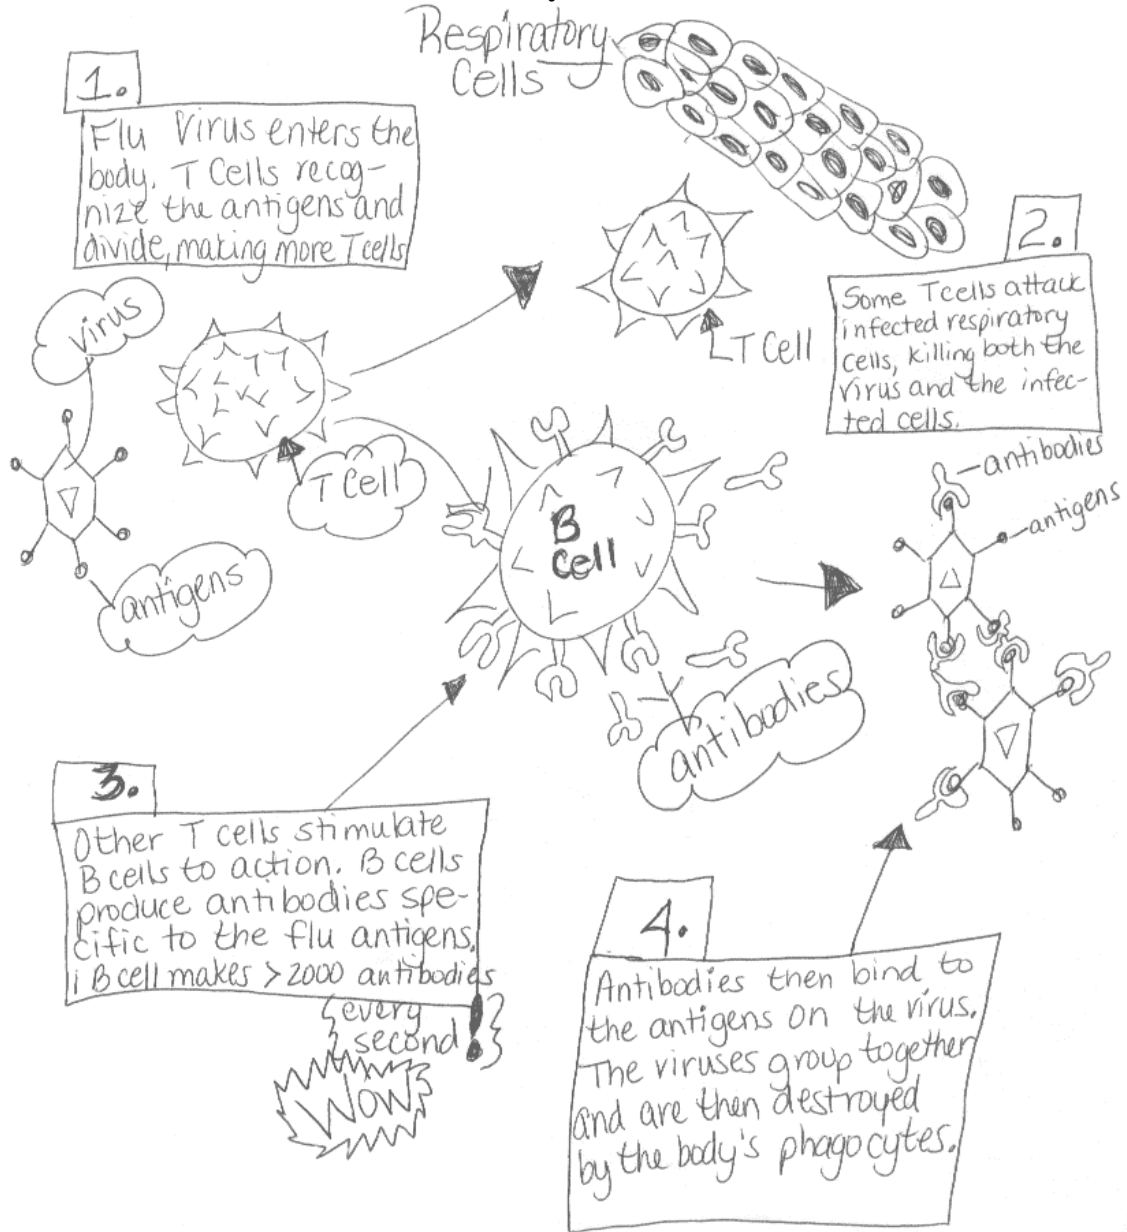 Respiratory
Cells
1.
Flu Virus enters the
body. T Cells recog-
nize the antigens and
divide, making more T cells
virus
T Cell
antigens
T Cell
2.
Some T cells attack
infected respiratory
cells, killing both the
virus and the infec-
ted cells.
B
Cell
antibodies
antibodies
antigens
3.
Other T cells stimulate
B cells to action. B cells
produce antibodies spe-
cific to the flu antigens.
1 B cell makes > 2000 antibodies
every
second!
WOW
4.
Antibodies then bind to
the antigens on the virus.
The viruses group together
and are then destroyed
by the body's phagocytes.